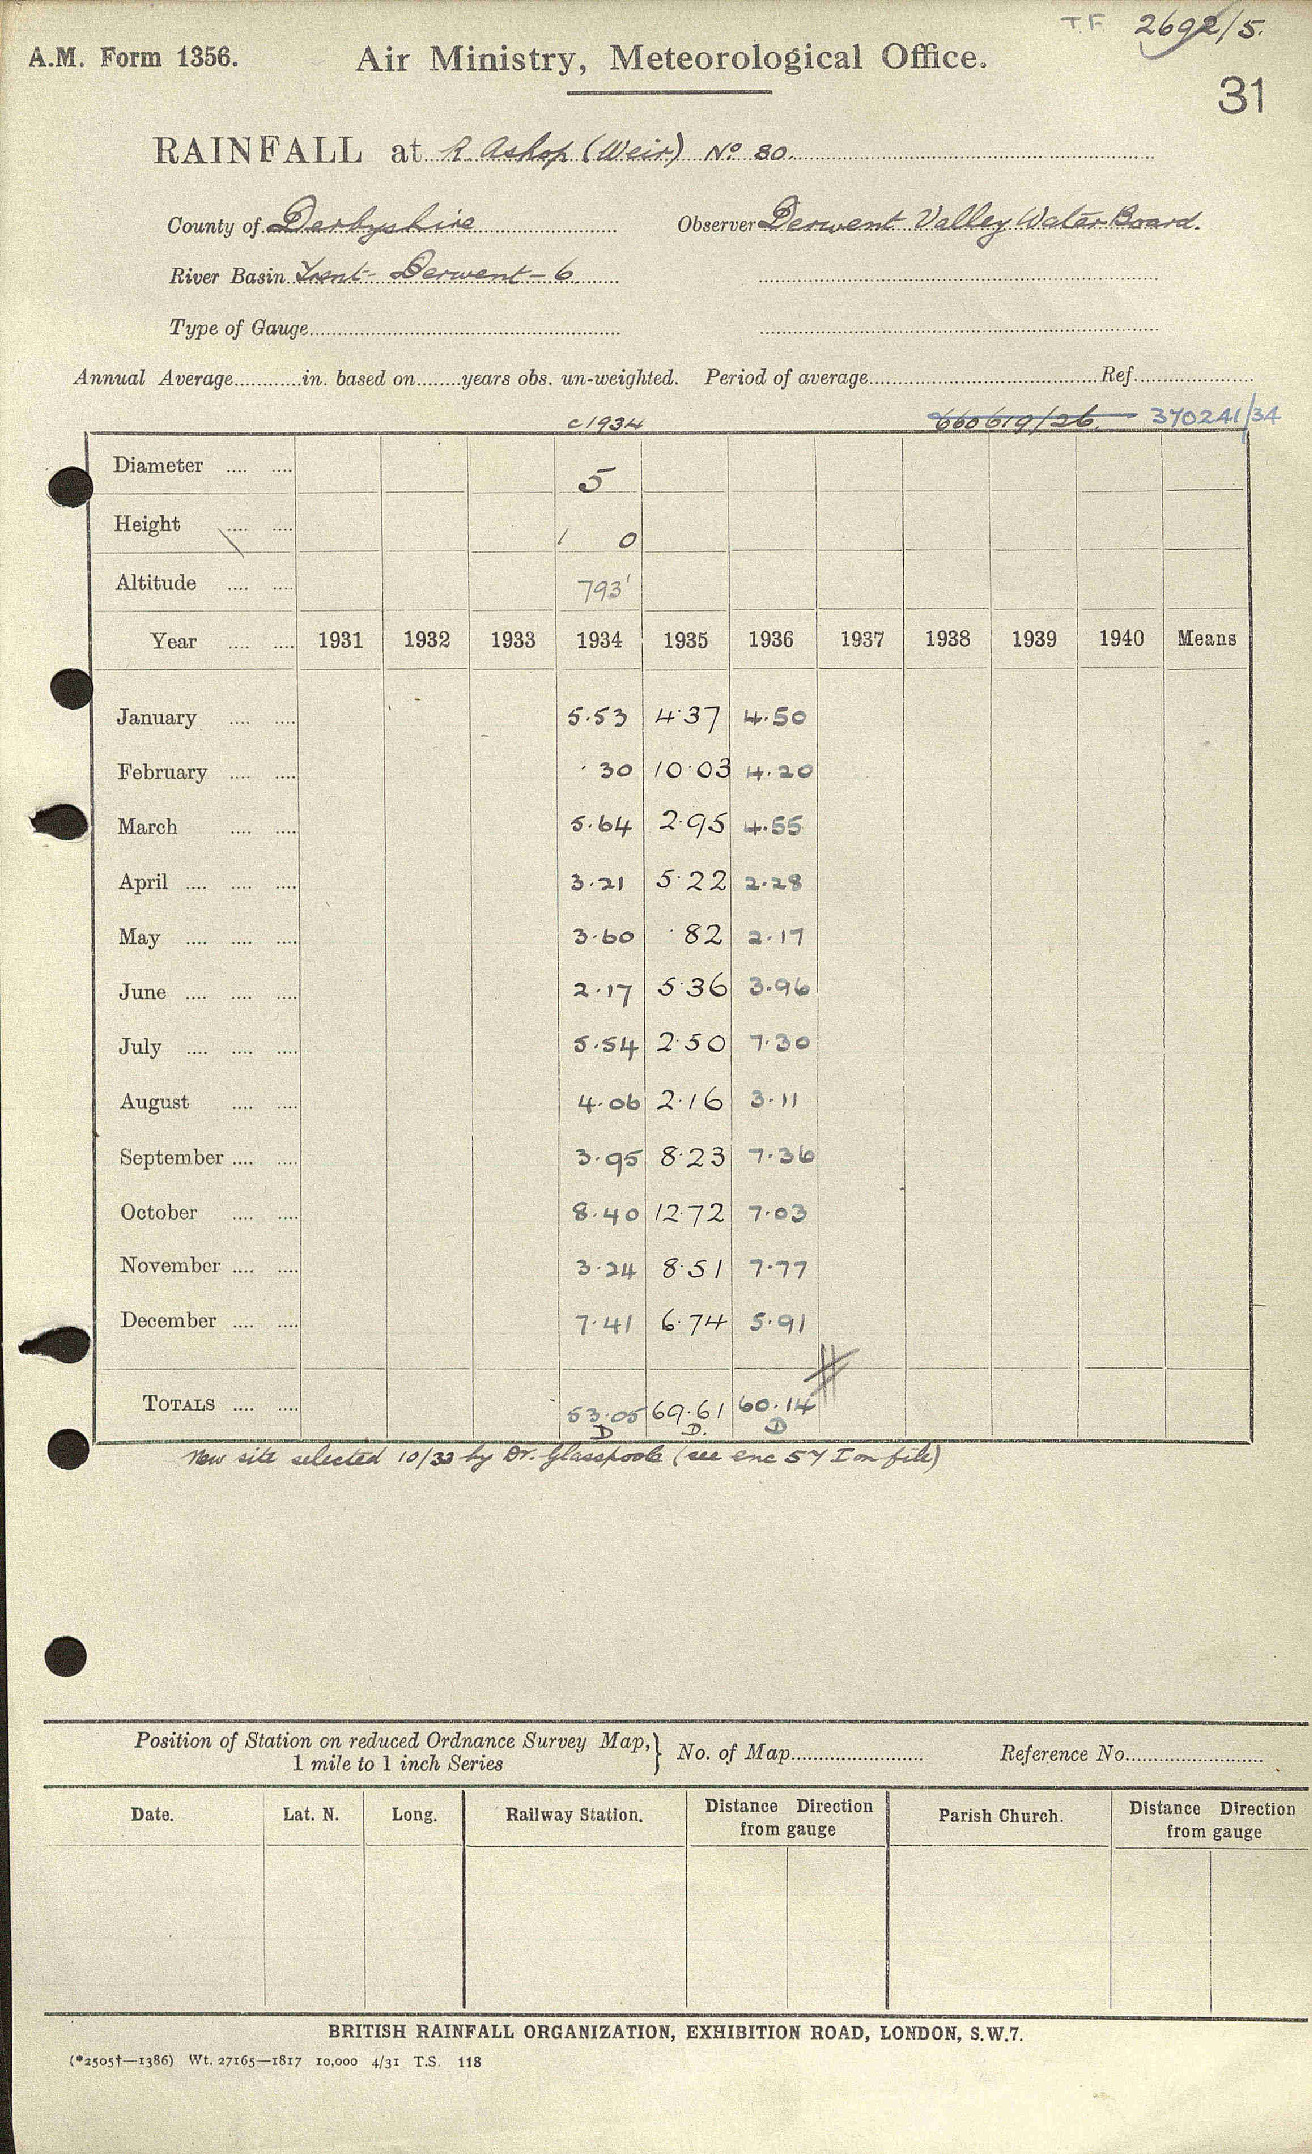 T.F 2692/5.
A.M. Form 1356. Air Ministry, Meteorological Office.
31
RAINFALL at R Ashop (Weir) No 80.
County of Derbyshire Observer Derwent Valley Water Board.
River Basin Trent - Derwent - 6
Type of Gauge
Annual Average in. based on years obs. un-weighted. Period of average Ref.
c1934 660619/26. 370241/34
Diameter 5
Height 1 0
Altitude 793'
Year 1931 1932 1933 1934 1935 1936 1937 1938 1939 1940 Means
January 5.53 4.37 4.50
February .30 10.03 4.20
March 5.64 2.95 4.55
April 3.21 5.22 2.28
May 3.60 .82 2.17
June 2.17 5.36 3.96
July 5.54 2.50 7.30
August 4.06 2.16 3.11
September 3.95 8.23 7.36
October 8.40 12.72 7.03
November 3.24 8.51 7.77
December 7.41 6.74 5.91
TOTALS 53.05 69.61 60.14
D D. D
New site selected 10/33 by Dr. Glasspoole (see enc 57 I on file)
Position of Station on reduced Ordnance Survey Map, 1 mile to 1 inch Series } No. of Map Reference No.
Date. Lat. N. Long. Railway Station. Distance Direction from gauge Parish Church. Distance Direction from gauge
BRITISH RAINFALL ORGANIZATION, EXHIBITION ROAD, LONDON, S.W.7.
(*2505†—1386) Wt. 27165—1817 10,000 4/31 T.S. 118